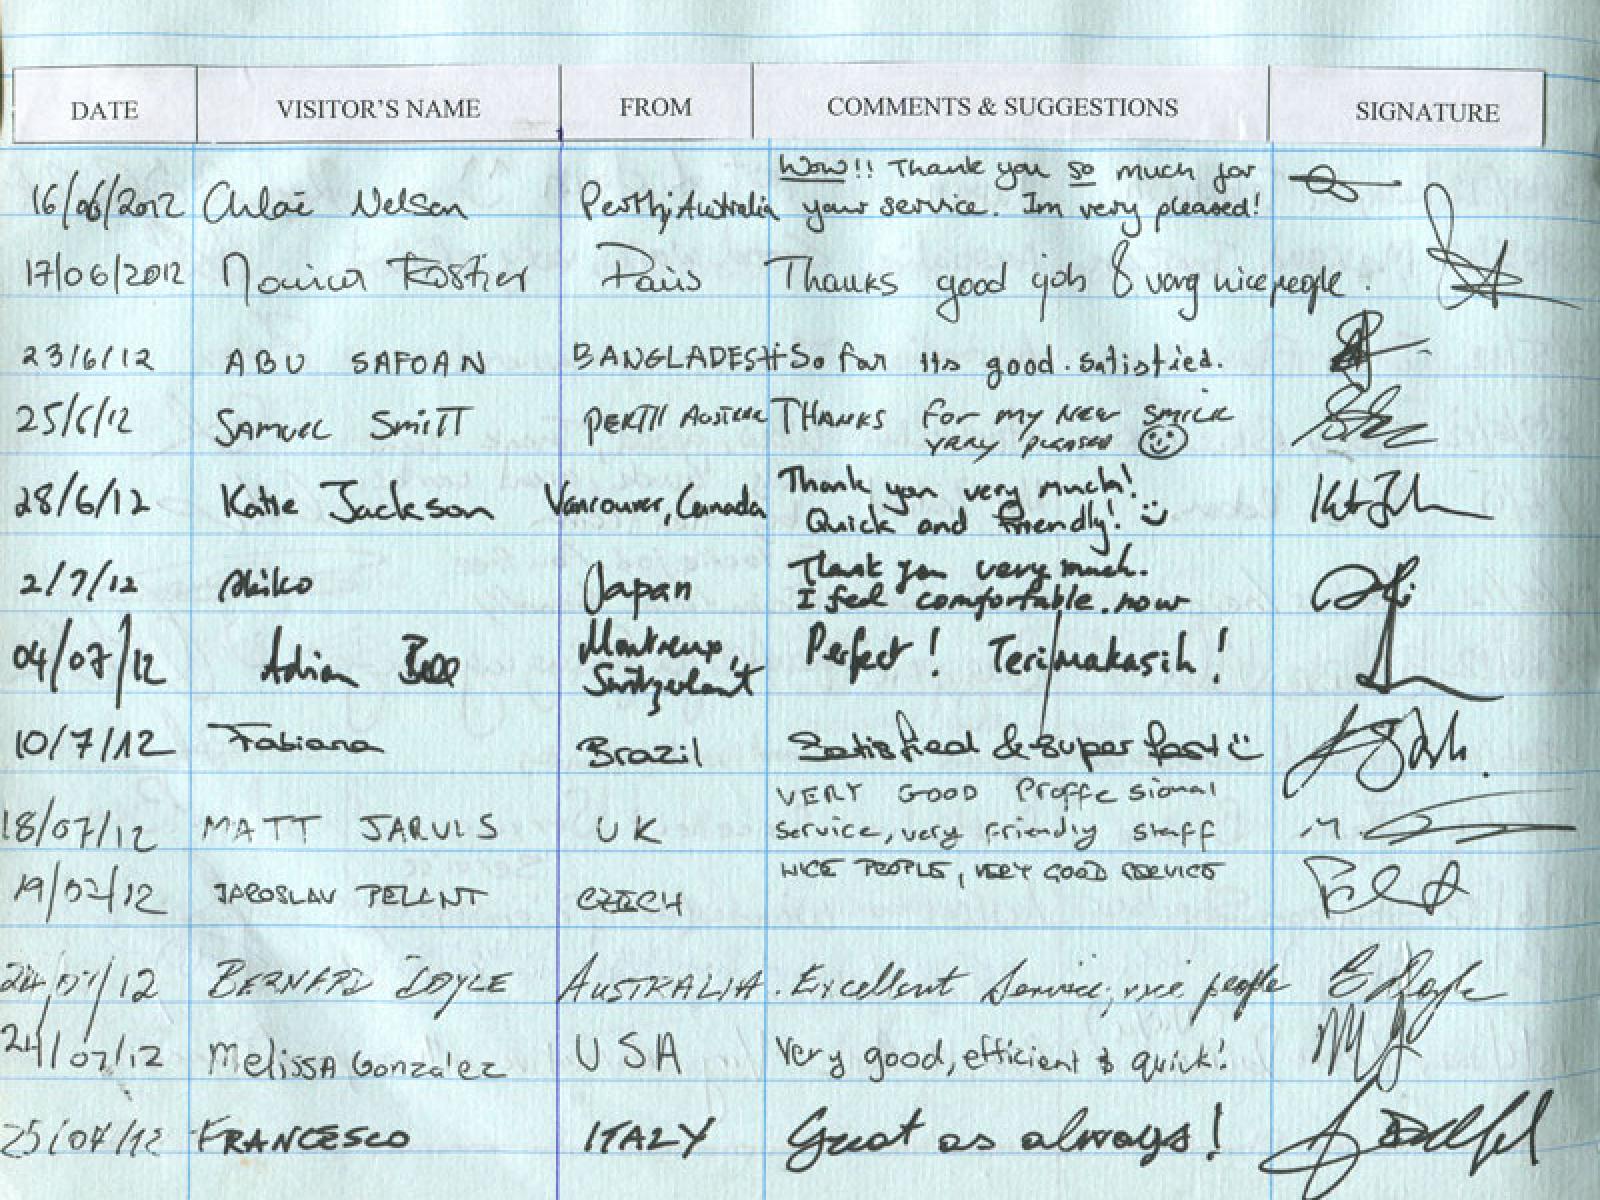 DATE VISITOR'S NAME FROM COMMENTS & SUGGESTIONS SIGNATURE
Wow!! Thank you so much for
16/06/2012 Chloë Nelson Perth, Australia your service. Im very pleased!
17/06/2012 Paris Thanks good job & very nice people.
23/6/12 ABU SAFOAN BANGLADESH So far its good. satisfied.
25/6/12 SAMUEL SMITT PERTH THANKS FOR MY NEW SMILE
VERY PLEASED
28/6/12 Katie Jackson Vancouver, Canada Thank you very much!
Quick and friendly!
2/7/12 Akiko Japan Thank you very much.
I feel comfortable. now
04/07/12 Adrian Montreux, Perfect! Terimakasih!
Switzerland
10/7/12 Fabiana Brazil Satisfied & super fast
VERY GOOD Proffesional
18/07/12 MATT JARVIS UK service, very friendly staff
NICE PEOPLE, VERY GOOD SERVICE
19/07/12 JAROSLAV PELANT CZECH
24/07/12 BERNARD DOYLE AUSTRALIA. Excellent Service, nice people
24/07/12 Melissa Gonzalez USA Very good, efficient & quick!
25/07/12 FRANCESCO ITALY Great as always!